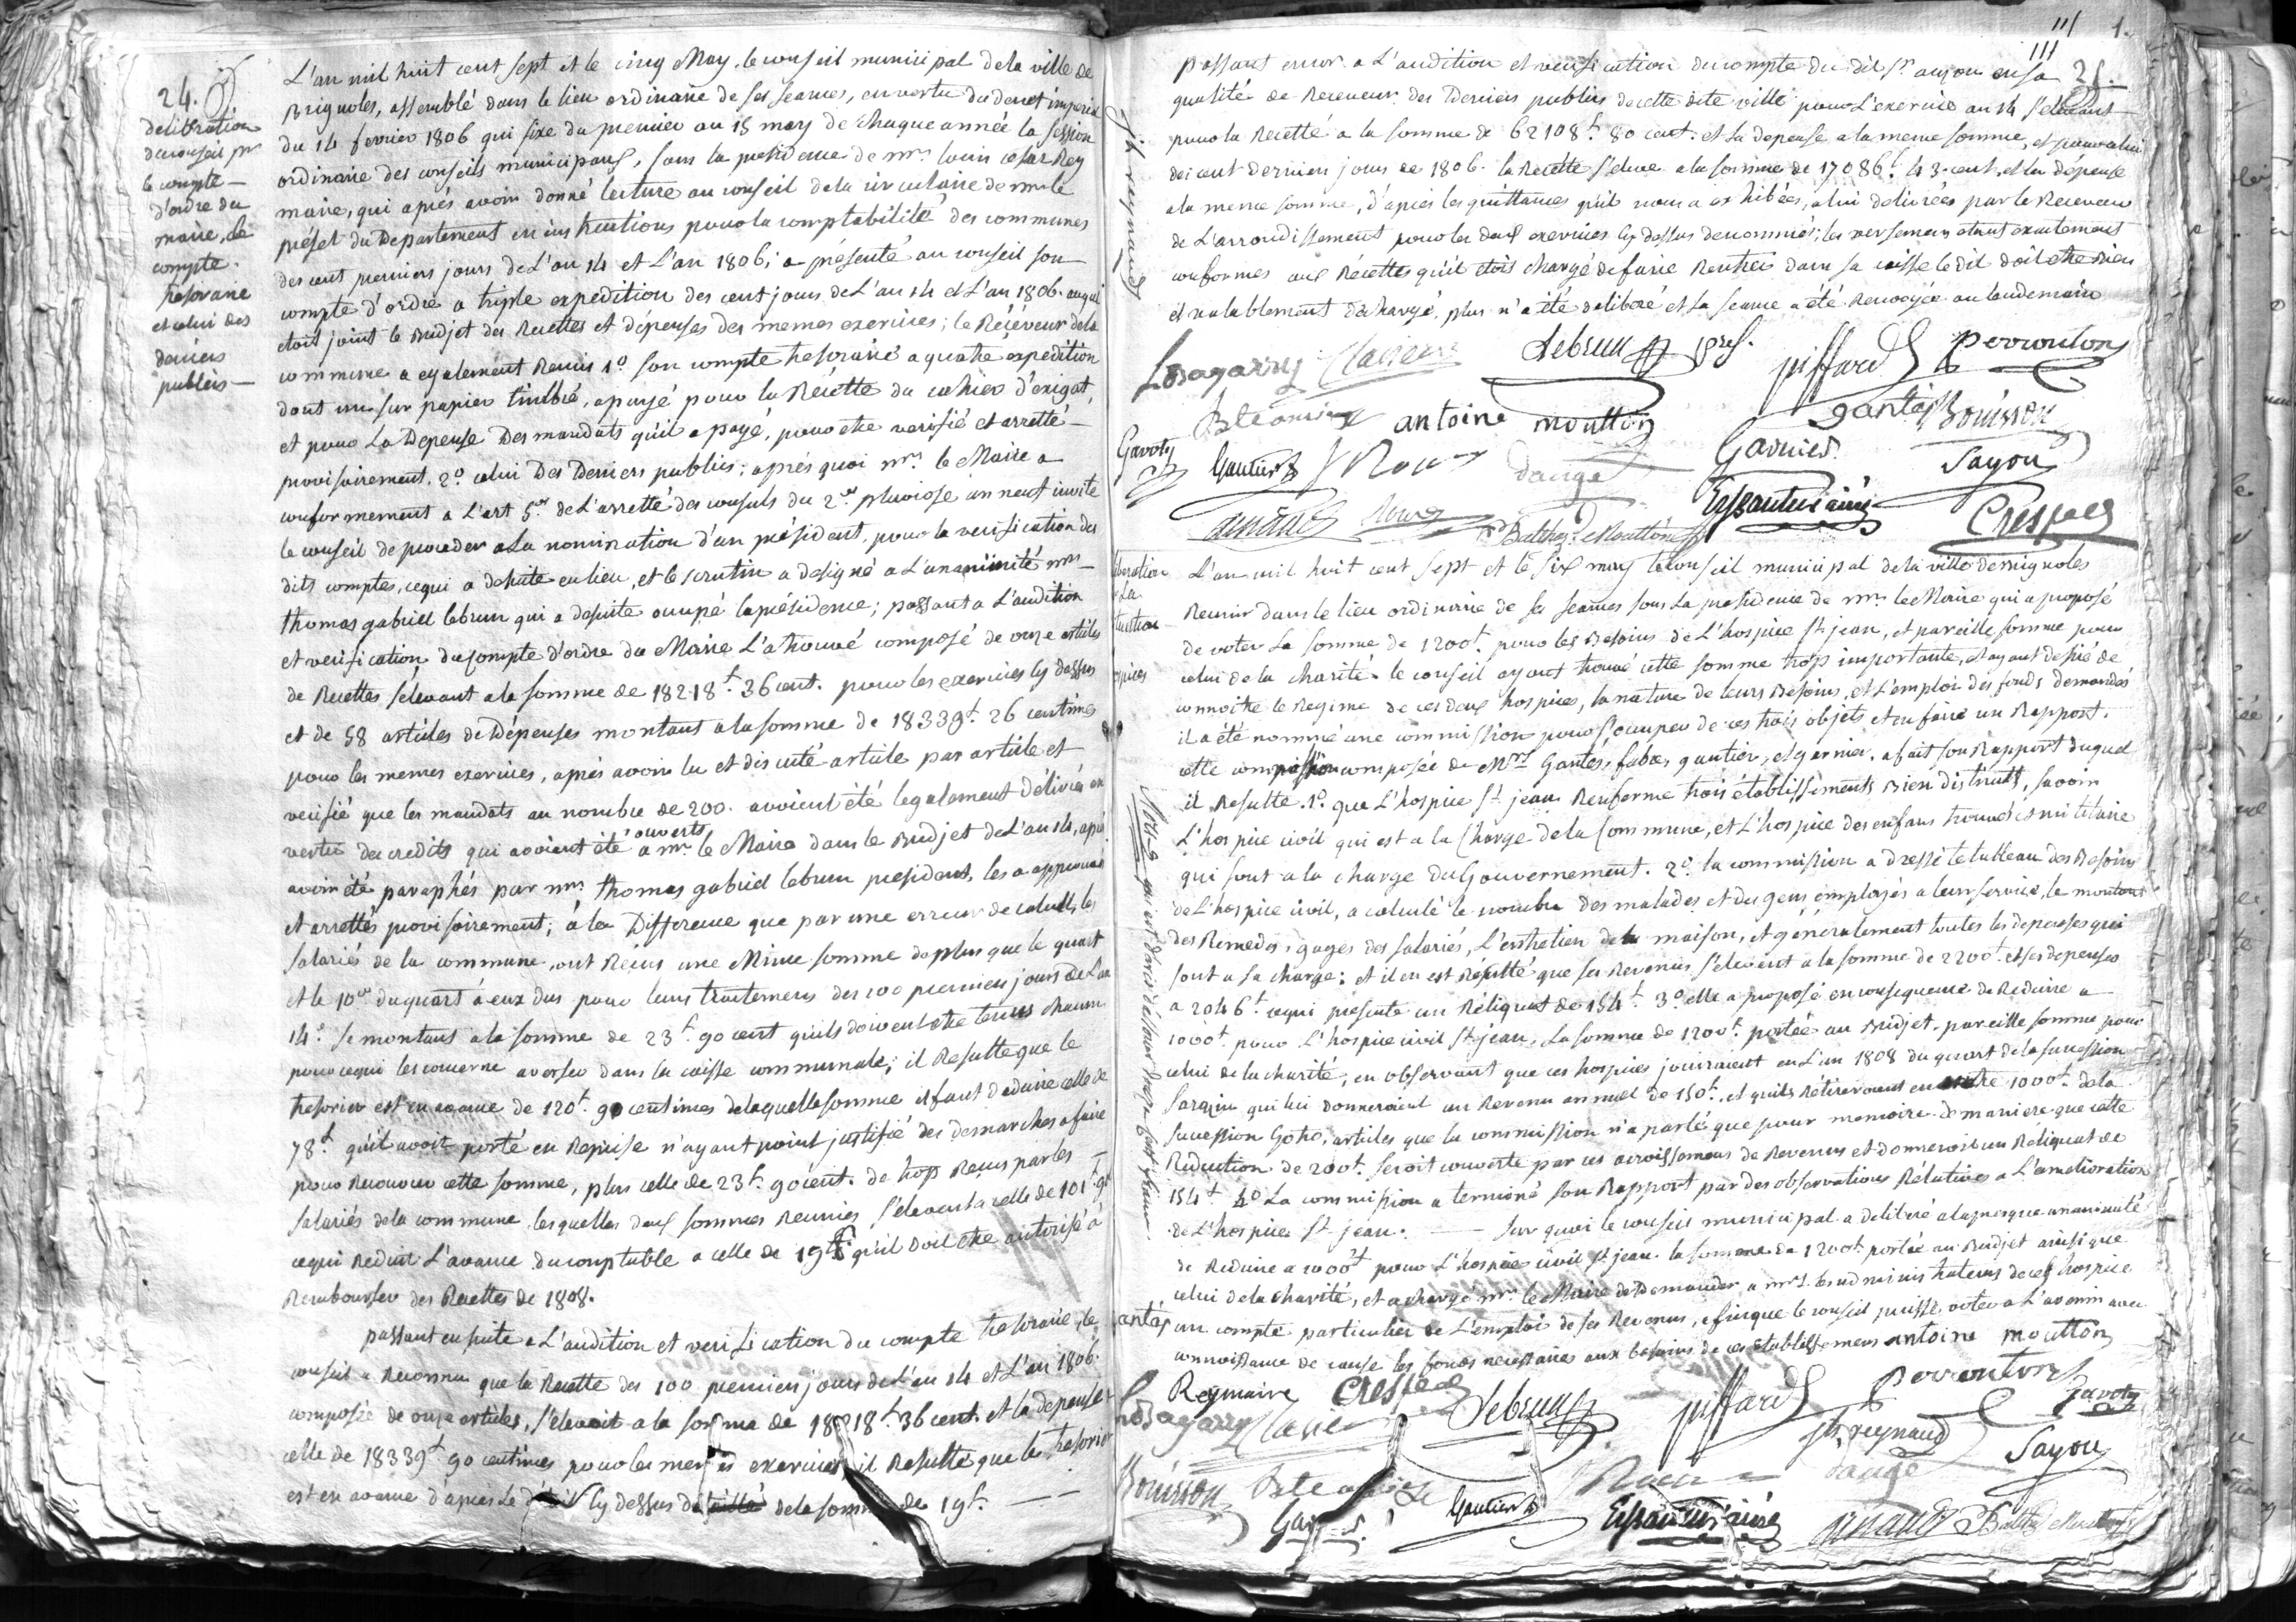 24.
deliberation
du conseil pr
le compte
d'ordre du
maire, le
compte
tresoraire
et celui des
deniers
publics
L'an mil huit cent sept et le cinq May, le conseil municipal de la ville de
Brignoles, assemblé dans le lieu ordinaire de ses seances, en vertu du decret imperial
du 14 fevrier 1806 qui fixe du premier au 15 may de chaque année la session
ordinaire des conseils municipaux, sous la presidence de mr. louis cesar Rey
maire, qui après avoir donné lecture au conseil de la circulaire de mr le
préfet du Departement en instructions pour la comptabilité des communes
des cent premiers jours de L'an 14 et L'an 1806; a présenté au conseil son
compte d'ordre a triple expedition des cent jours de L'an 14 et L'an 1806. auquel
etoit joint le Budjet des Recettes et dépenses des memes exercices; le Réceveur de la
commune a egalement Remis 1º son compte tresoraire a quatre expedition
dont une sur papier timbré, apuyé pour la Récette du cahier d'exigat,
et pour La Depense Des mandats qu'il a payé, pour etre verifié et arretté
provisoirement. 2º celui Des Deniers publics; après quoi mr. le Maire a
conformement a L'art 5me de L'arretté des consuls du 2me pluviose an neuf invite
le conseil de proceder a La nomination d'un président, pour la verification des
dits comptes, ce qui a de suite eu lieu, et le scrutin a designé a L'unanimité mr
thomas gabriel lebrun qui a desuite occupé la présidence; passant a L'audition
et verification du compte d'ordre du Maire L'a trouvé composé de onze articles
de Recettes s'elevant a la somme de 18218f. 36 cent. pour les exercices cy dessus
et de 58 articles de Dépenses montant a la somme de 18339f. 26 centimes
pour les memes exercices, après avoir lu et discuté article par article et
verifié que les mandats au nombre de 200. avoient été legalement délivrés en
vertu des credits qui avoient été ouverts a mr le Maire dans le Budjet de L'an 14, après
avoir été paraphés par mr. thomas gabriel lebrun president, les a approuvés
et arrettés provisoirement; à la Difference que par une erreur de calcul, les
salariés de la commune, ont Reçus une Mince somme de plus que le quart
et le 10me du quart à eux dus pour leurs traitemens des 100 premiers jours de L'an
14. se montant a la somme de 23f. 90 cent qu'ils doivent etre tenus chacun
pour ce qui les concerne a verser dans la caisse communale; il Resulte que le
tresorier est en avance de 120f. 90 centimes de laquelle somme il faut deduire celle de
78f qu'il avoit porté en Reprise n'ayant point justifié des demarches a faire
pour Recouvrer cette somme, plus celle de 23f. 90 cent. de trop Reçus par les
salariés de la commune lesquelles deux sommes Reunies s'elevent a celle de 101f 90
ce qui Reduit L'avance du comptable a celle de 19f. qu'il doit etre autorisé à
Rembourser des Recettes de 1808.
passant ensuite a L'audition et verification du compte tresoraire, le
conseil a Reconnu que la Recette des 100 premiers jours de L'an 14 et L'an 1806
composée de onze articles, s'elevoit a la somme de 18218f. 36 cent. et la depense a
celle de 18339f 90 centimes pour les memes exercices il Resulte que le tresorier
est en avance d'après Le cy dessus de la somme de 19f.
111
1.
111
25.
passant encor a L'audition et verification du compte du dit Sr. en sa
qualité de Receveur des Deniers publics de cette dite ville pour L'exercice an 14 s'elevant
pour la Recette a la somme de 62108f. 80 cent. et la depense a la meme somme, et pour celui
des cent derniers jours de 1806. la Recette s'eleve a la somme de 17086f. 43 cent. et la dépense
a la meme somme, d'après les quittances qu'il nous a exhibées, a lui delivrées par le Receveur
de L'arrondissement pour les deux exercices cy dessus denommés; les versemens etant exactement
conformes aux Récettes qu'il etoit chargé de faire Rentrer dans sa caisse le dit doit etre bien
et valablement dechargé. plus n'a été deliberé et la seance a été Renvoyée au lendemain
jh reynaud
Losagarry Clavier Lebrun prest. piffard Perrouton
antoine moutton gantès Bouisson
Gavoty Gautier Roux dauge Garnier Sayou
arnaud Balthd Moutton Espanet ainé Crespel
L'an mil huit cent sept et le six may le conseil municipal de la ville de Brignoles
Reunir dans le lieu ordinaire de ses seances sous La presidence de mr. le Maire qui a proposé
de voter La somme de 1200f. pour les Besoins de L'hospice St jean, et pareille somme pour
celui de la charité. le conseil ayant trouvé cette somme trop importante, et ayant desiré de
connoitre le Regime de ces deux hospices, la nature de leurs Besoins, et L'emploi des fonds demandés
il a été nommé une commission pour s'occuper de ces trois objets et en faire un Rapport.
cette commission composée de Mrs Gantès, fabre, gautier, et garnier. a fait son Rapport duquel
il Resulte 1º. que L'hospice St. jean Renferme trois établissements Bien distincts, savoir
L'hospice civil qui est a la Charge de la Commune, et L'hospice des enfans trouvés et militaire
qui sont a la charge du Gouvernement. 2º. la commission a dressé le tableau des Besoins
de L'hospice civil, a calculé le nombre des malades et des gens employés a leur service, le montant
des Remedes, gages des salariés, L'entretien de la maison, et généralement toutes les depenses qui
sont a sa charge; et il en est Résulté que ses Revenus s'elevent a la somme de 2200f. et ses depenses
a 2046f. ce qui presente un Réliquat de 154f. 3º. elle a proposé en consequence de Reduire a
1000f. pour L'hospice civil St. jean, La somme de 1200f. portée au Budjet, pareille somme pour
celui de la charité, en observant que ces hospices jouiraient en L'an 1808 du quart de la succession
Sarazin qui lui donneroient un Revenu annuel de 150f., et qu'ils rétireroient en outre 1000f. de la
succession Goho, articles que la commission n'a parlé que pour memoire. de maniere que cette
Reduction de 200f. seroit couverte par ces accroissemens de Revenus et donneroit un Réliquat de
154f. 4º La commission a terminé son Rapport par des observations Rélatives a L'amelioration
de L'hospice St. jean. sur quoi le conseil municipal a deliberé a la presque unanimité
de Reduire a 1000f pour L'hospice civil St jean la somme de 1200f. portée au Budjet ainsi que
celui de la charité, et a chargé mr. le Maire de Demander a mrs. les administrateurs de ces hospice
un compte particulier de L'emploi de ses Revenus, afin que le conseil puisse voter a L'avenir avec
connoissance de cause les fonds necessaires aux besoins de ces établissemens antoine moutton
Reymaire Crespel Lebrun piffard Perrouton Gavoty
Losagarry Clavier jh. reynaud Sayou
Bouisson Roux dauge
Garnier Gautier Espanet ainé arnaud Balthd Moutton